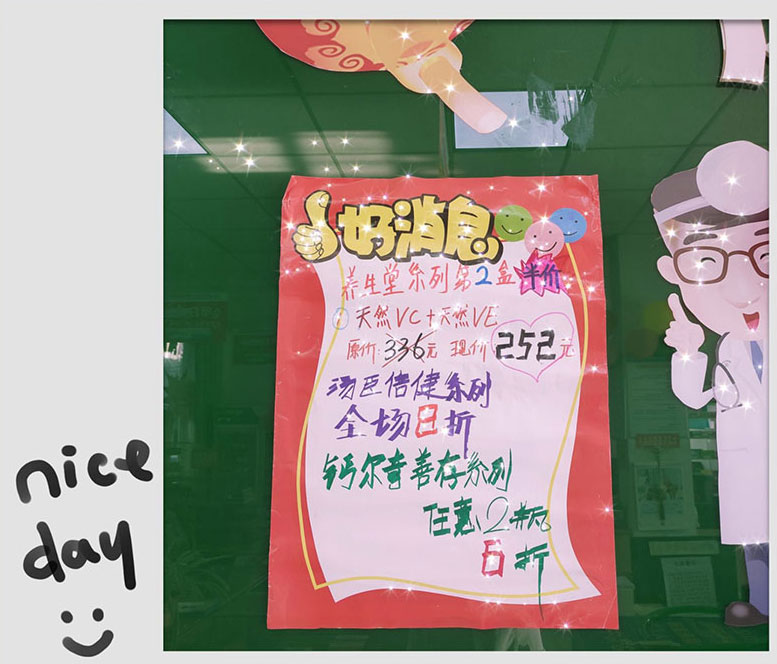 好消息
养生堂系列第2盒半价
① 天然VC+天然VE
原价:336元 现价252元
汤臣倍健系列
全场8折
钙尔奇善存系列
任意2瓶
6折
nice
day